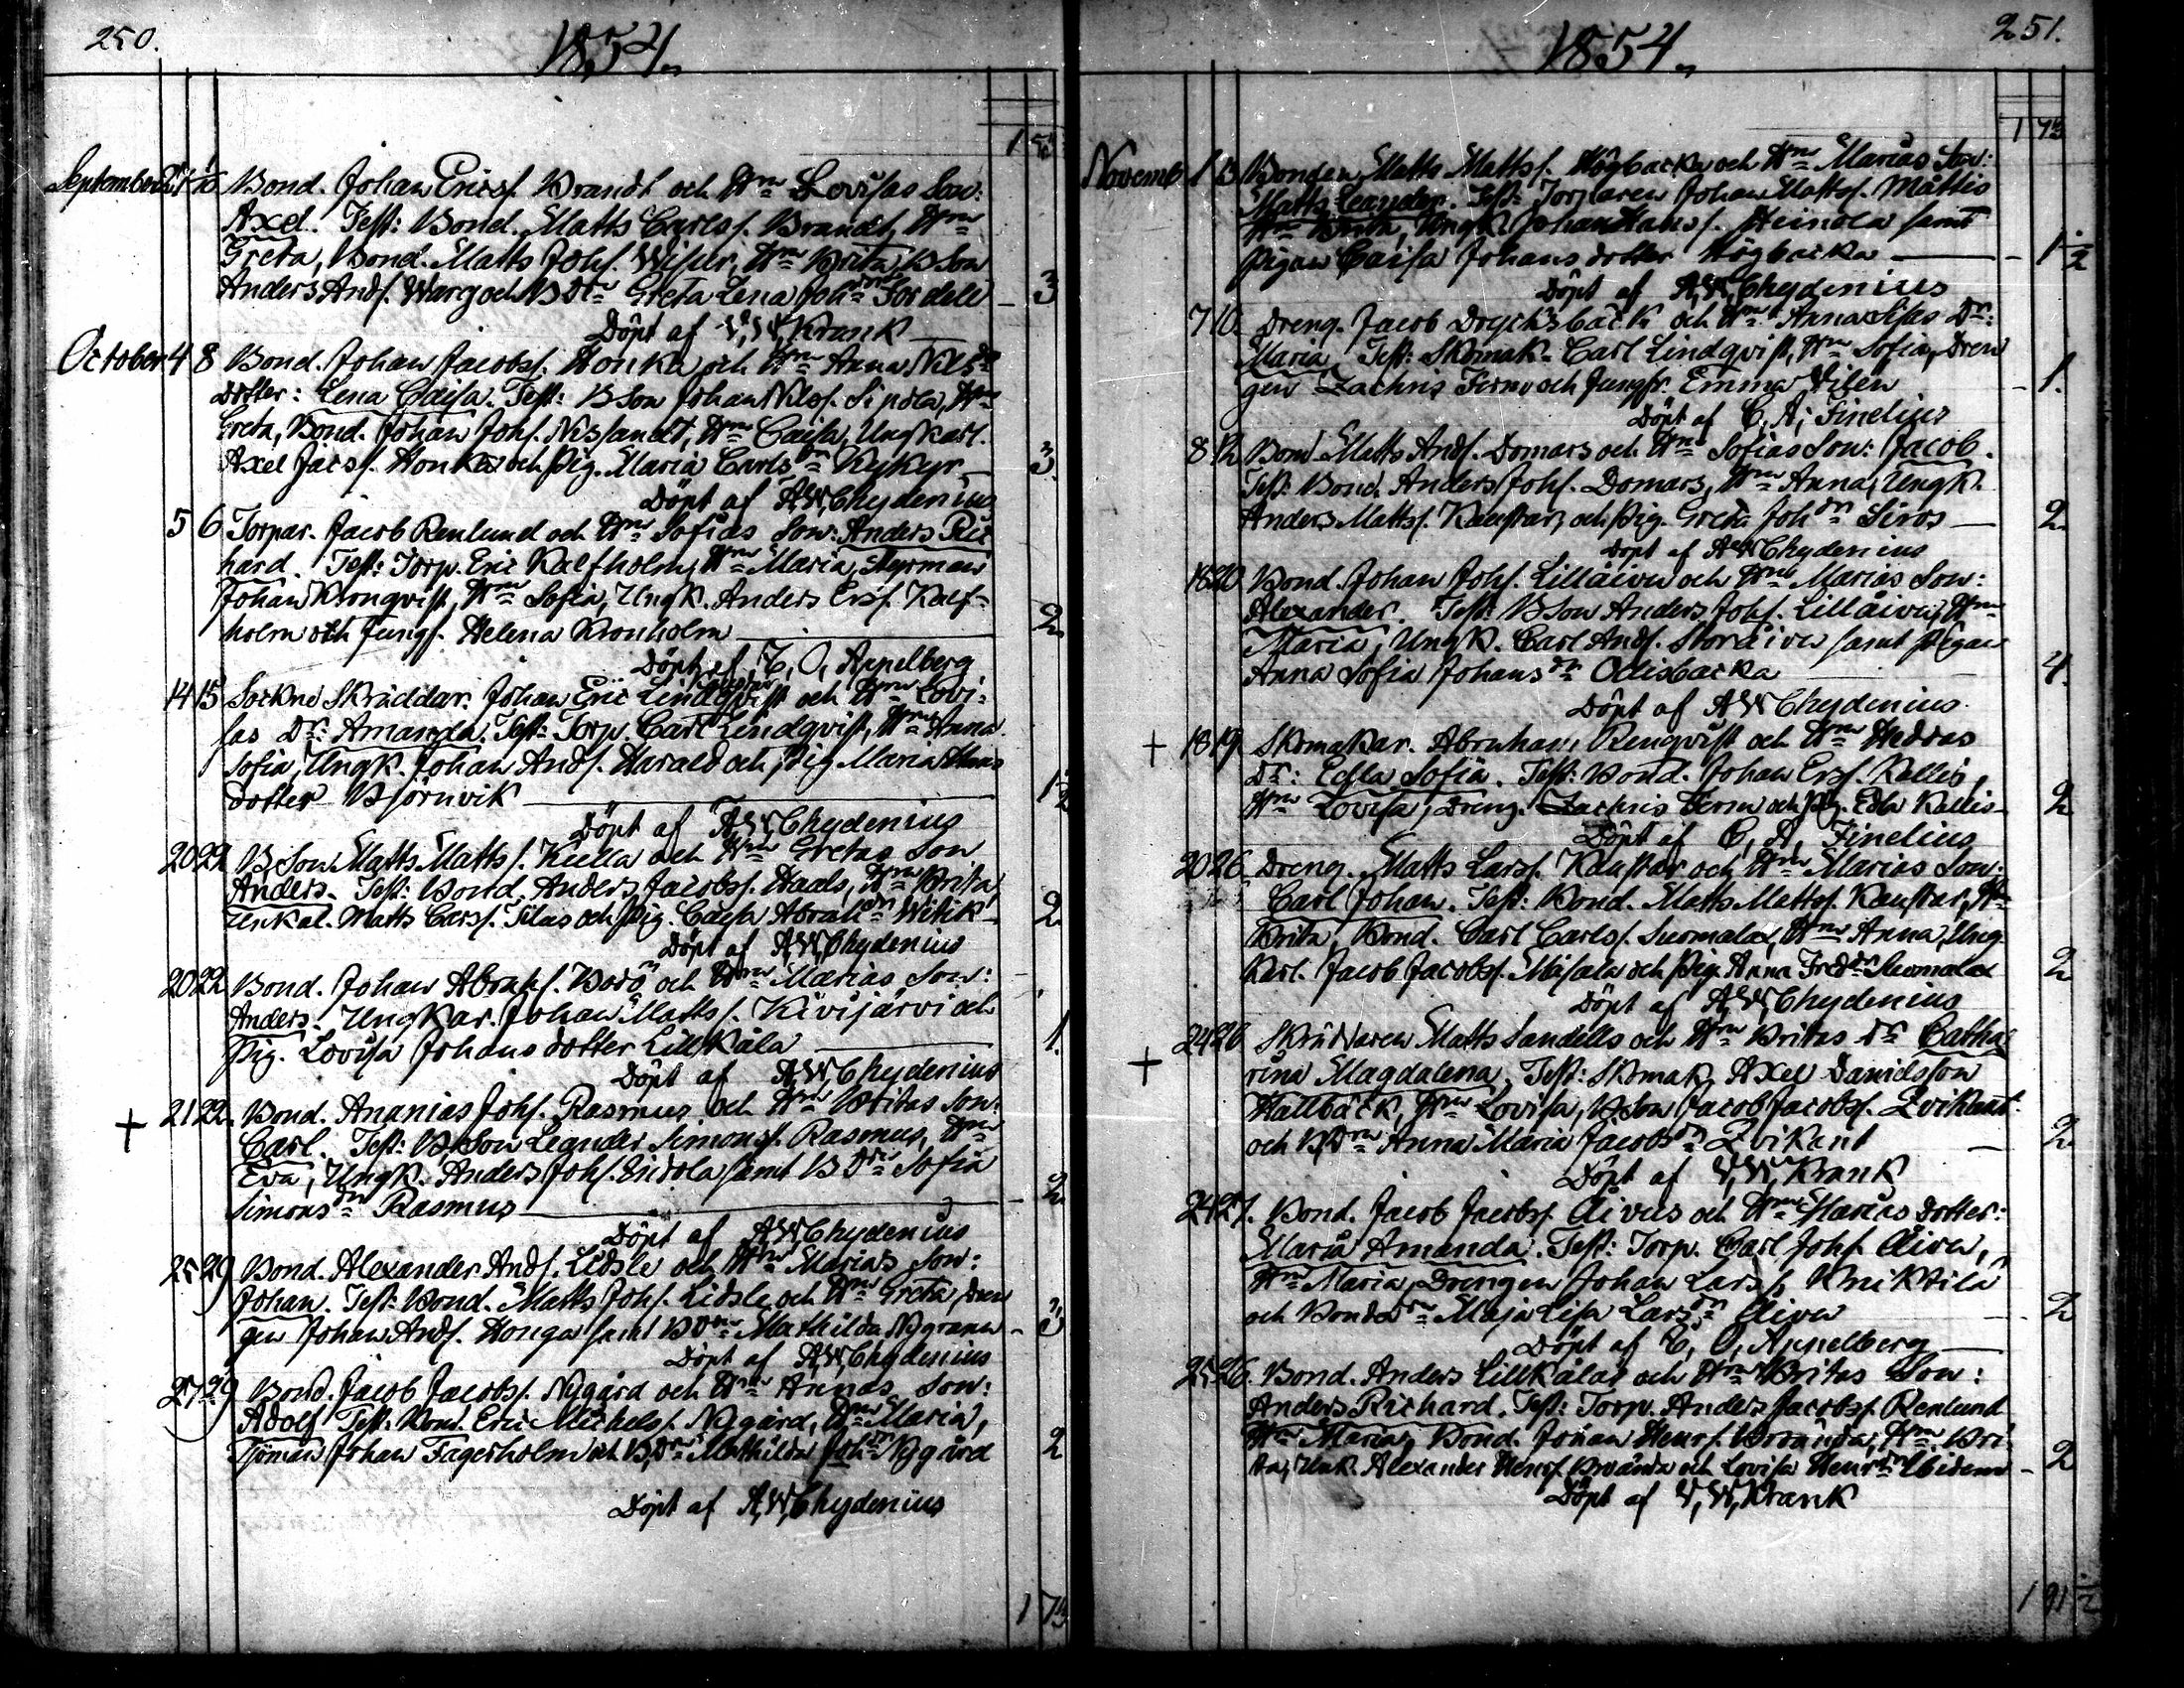 250.
1854.
1
September
Bond. Johan Ericss. Brandt och Hns Lovisas Son:
Axel. Test: Bond. Matts Carlss. Brandt, Hns
Greta, Bond. Matts Johs. Hns Brita, B Son
Anders Ands. Warg och B Dtr Greta Lena Johdr Sordell 3
Döpt af V, W, Krank
October 4 8 Bond. Johan Jacobss. Honka och Hns Anna Nils
dotter: Lena Caisa. Test: B Son Johan Nilss. Sipola, Hns
Greta, Bond. Johan Johs. Nissandt, Hns Caisa, Ungkarl.
Axel Jacss. Honka och Pig. Maria Carlsdr Kykyr 3
Döpt af A, W, Chydenius
5 6 Torpar. Jacob Renlund och Hns Sofias Son: Anders Ric
hard. Test: Torp. Eric Kalfholm, Hns Maria, Styrman
Johan Kronqvist, Hns Sofia, Ungk. Anders Erss. Kalf-
holm och Jungf. Helena Kronholm 2
Döpt af C, O, Appelberg
14 15 Sockne Skräddar. Johan Eric Lindqvist och Hns Lovi-
sas Dr: Amanda. Test: Torp. Carl Lindqvist, Hns Anna
Sofia, Ungk. Johan Ands. Harald och Pig Maria
dotter Björnvik 1 1/2
Döpt af A, W, Chydenius
20 22 B Son Matts Mattss. Kiella och Hns Gretas Son
Anders. Test: Bond. Anders Jacobss. Haals, Hns Brita,
Unkal. Matts Carss. Silas och Pig. Caisa Abrahdr Witik 2
Döpt af A, W, Chydenius
20 22 Bond. Johan Abrahs. Borö och Hns Marias Son:
Anders. Ungkar. Johan Mattss. Kivijärvi och
Pig. Lovisa Johansdotter Lillkåla 1.
Döpt af A, W, Chydenius
+ 21 22. Bond. Ananias Johs. Rasmus och Hns Britas Son:
Carl. Test: B Son Leander Simonss. Rasmus, Hns
Eva, Ungk. Anders Johs. Indola samt B Dtr Sofia
Simonsdr Rasmus 2
Döpt af A, W, Chydenius
25 29 Bond. Alexander Ands. Lidsle och Hns Marias Son:
Johan. Test: Bond. Matts Johs. Lidsle och Hns Greta, Dren
gen Johan Ands. Honga samt B Dtr Mathilda Nygrann 3
Döpt af A, W, Chydenius
27 29 Bond. Jacob Jacobss. Nygård och Hns Annas Son:
Adolf Test: Bond. Eric Michelss. Nygård, Hns Maria,
Sjöman Johan Fagerholm och B, Dtr Mathilda Johdr Nygård 2
Döpt af A, W, Chydenius
251.
1854.
Novemb 1 3 Bonden Matts Mattss. Högbacka och Hns Marias Son:
Matts Leander. Test: Torparen Johan Mattss. Mattis
Hns Brita, Ungk. Johan Hanss. Heinola samt
Pigan Caisa Johansdotter Högbacka 1 1/2
Döpt af A, W, Chydenius
7 10. Dreng. Jacob Drycksbäck och Hns Anna Lisas Dr:
Maria. Test: Skomak. Carl Lindqvist, Hns Sofia, Dren
gen Zachris och Jungfr. Emma Vilén 1.
Döpt af C, A, Finelius
8 12 Bond Matts Ands. Domars och Hns Sofias Son: Jacob.
Test: Bond. Anders Johs. Domars, Hns Anna, Ungk.
Anders Mattss. Kaustar, och Pig. Greta Johdr Siros 2
Döpt af A, W, Chydenius
18 20 Bond. Johan Johs. Lillåivu och Hns Marias Son:
Alexander. Test: B Son Anders Johs. Lillåivu, Hns
Maria, Ungk. Carl Ands. Storåivu samt Pigan
Anna Sofia Johansdr Odisbacka 4.
Döpt af A, W, Chydenius
+ 18 19. Skomakar. Abraham Renqvist och Hns Heddas
Dr: Edla Sofia. Test: Bond. Johan Erss. Kallis,
Hns Lovisa, Dreng. Zachris och Pig. Edla Kallis 2
Döpt af C, A, Finelius
20 26 Dreng. Matts Larss. Kaustar och Hns Marias Son:
Carl Johan. Test: Bond. Matts Mattss. Kaustar, Hns
Brita, Bond. Carl Carlss. Suomala, Hns Anna, Ung
Karl. Jacob Jacobss. Maisala och Pig. Anna Freddr Suomala 2
Döpt af A, W, Chydenius
+ 24 26 Skräddaren Matts Sandells och Hns Britas Dr Catha
rina Magdalena. Test: Skomak. Axel Danielsson
Hällbäck, Hns Lovisa, B Son Jacob Jacobss. Zvikant
och B, Dtr Anna Maria Jacobsdr Zvikant 2
Döpt af V, W, Krank
24 27. Bond. Jacob Jacobss. Åivus och Hns Marias Dotter:
Maria Amanda. Test: Torp. Carl Johs. Åivu,
Hns Maria, Drengen Johan Larss. Kniktila
och Bondedtr Maja Lisa Larsdr Åivu 2
Döpt af C, O, Appelberg
25 26. Bond. Anders Lillkålas och Hns Britas Son:
Anders Richard. Test: Torp. Anders Jacobss. Renlund
Hns Maria, Bond. Johan Henrs. Broända, Hns Bri
ta, Unk. Alexander Henrs. Broända och Lovisa Henrdr 2
Döpt af V, W, Krank
1 91 1/2